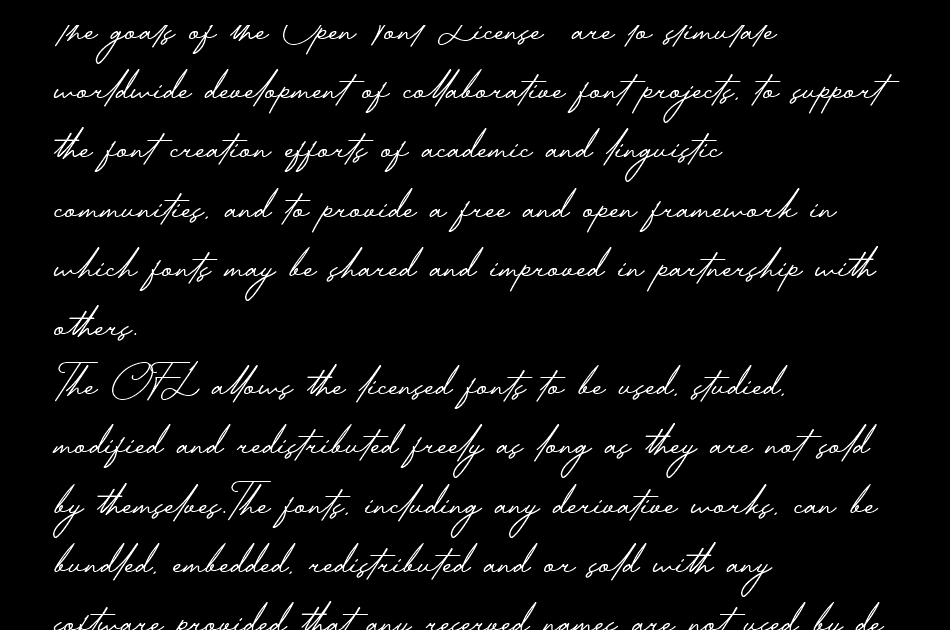 The goals of the Open Font License are to stimulate
worldwide development of collaborative font projects, to support
the font creation efforts of academic and linguistic
communities, and to provide a free and open framework in
which fonts may be shared and improved in partnership with
others.
The OFL allows the licensed fonts to be used, studied,
modified and redistributed freely as long as they are not sold
by themselves.The fonts, including any derivative works, can be
bundled, embedded, redistributed and or sold with any
software provided that any reserved names are not used by de